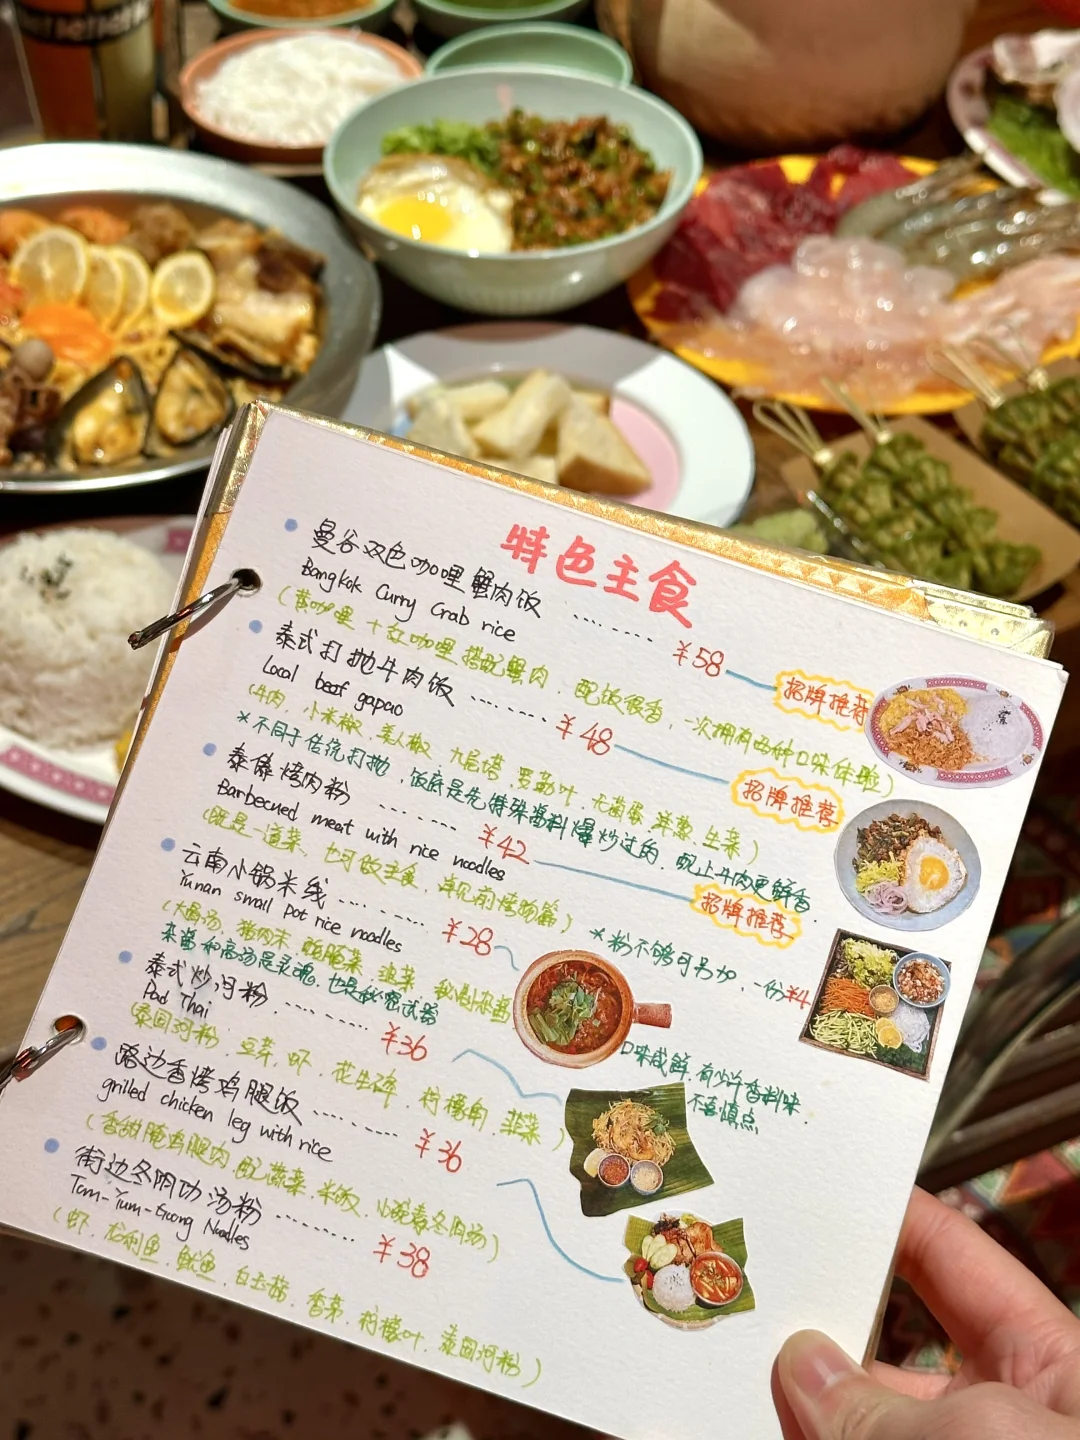 特色主食
曼谷双色咖喱蟹肉饭 ........ ¥58 招牌推荐
Bangkok Curry Crab rice
(黄咖喱+红咖喱搭配蟹肉.配饭很香,一次拥有两种口味体验)
泰式打抛牛肉饭 ........ ¥48 招牌推荐
Local beef gapao
(牛肉.小米椒.美人椒.九层塔.罗勒叶.无菌蛋.洋葱.生菜)
*不同于传统打抛,饭底是先特殊酱料爆炒过的,配上牛肉更鲜香.
泰傣烤肉粉 ........ ¥42 招牌推荐
Barbecued meat with rice noodles
(既是一道菜,也可做主食,详见前烤物篇) *粉不够可另加,一份¥4
云南小锅米线 ........ ¥28
Yunan small pot rice noodles
(大骨汤.猪肉末.酸腌菜.韭菜.
杂酱和高汤是灵魂,也是秘密武器
口味咸鲜,有少许香料味.
不喜慎点
泰式炒河粉 ........ ¥36
Pad Thai
(泰国河粉.豆芽.虾.花生碎.柠檬角.韭菜)
路边香烤鸡腿饭 ........ ¥36
grilled chicken leg with rice
(香甜腌鸡腿肉.配蔬菜.米饭.小碗泰冬阴汤)
街边冬阴功汤粉 ........ ¥38
Tom-Yum-Goong Noodles
(虾.龙利鱼.鱿鱼.白玉菇.香茅.柠檬叶.泰国河粉)